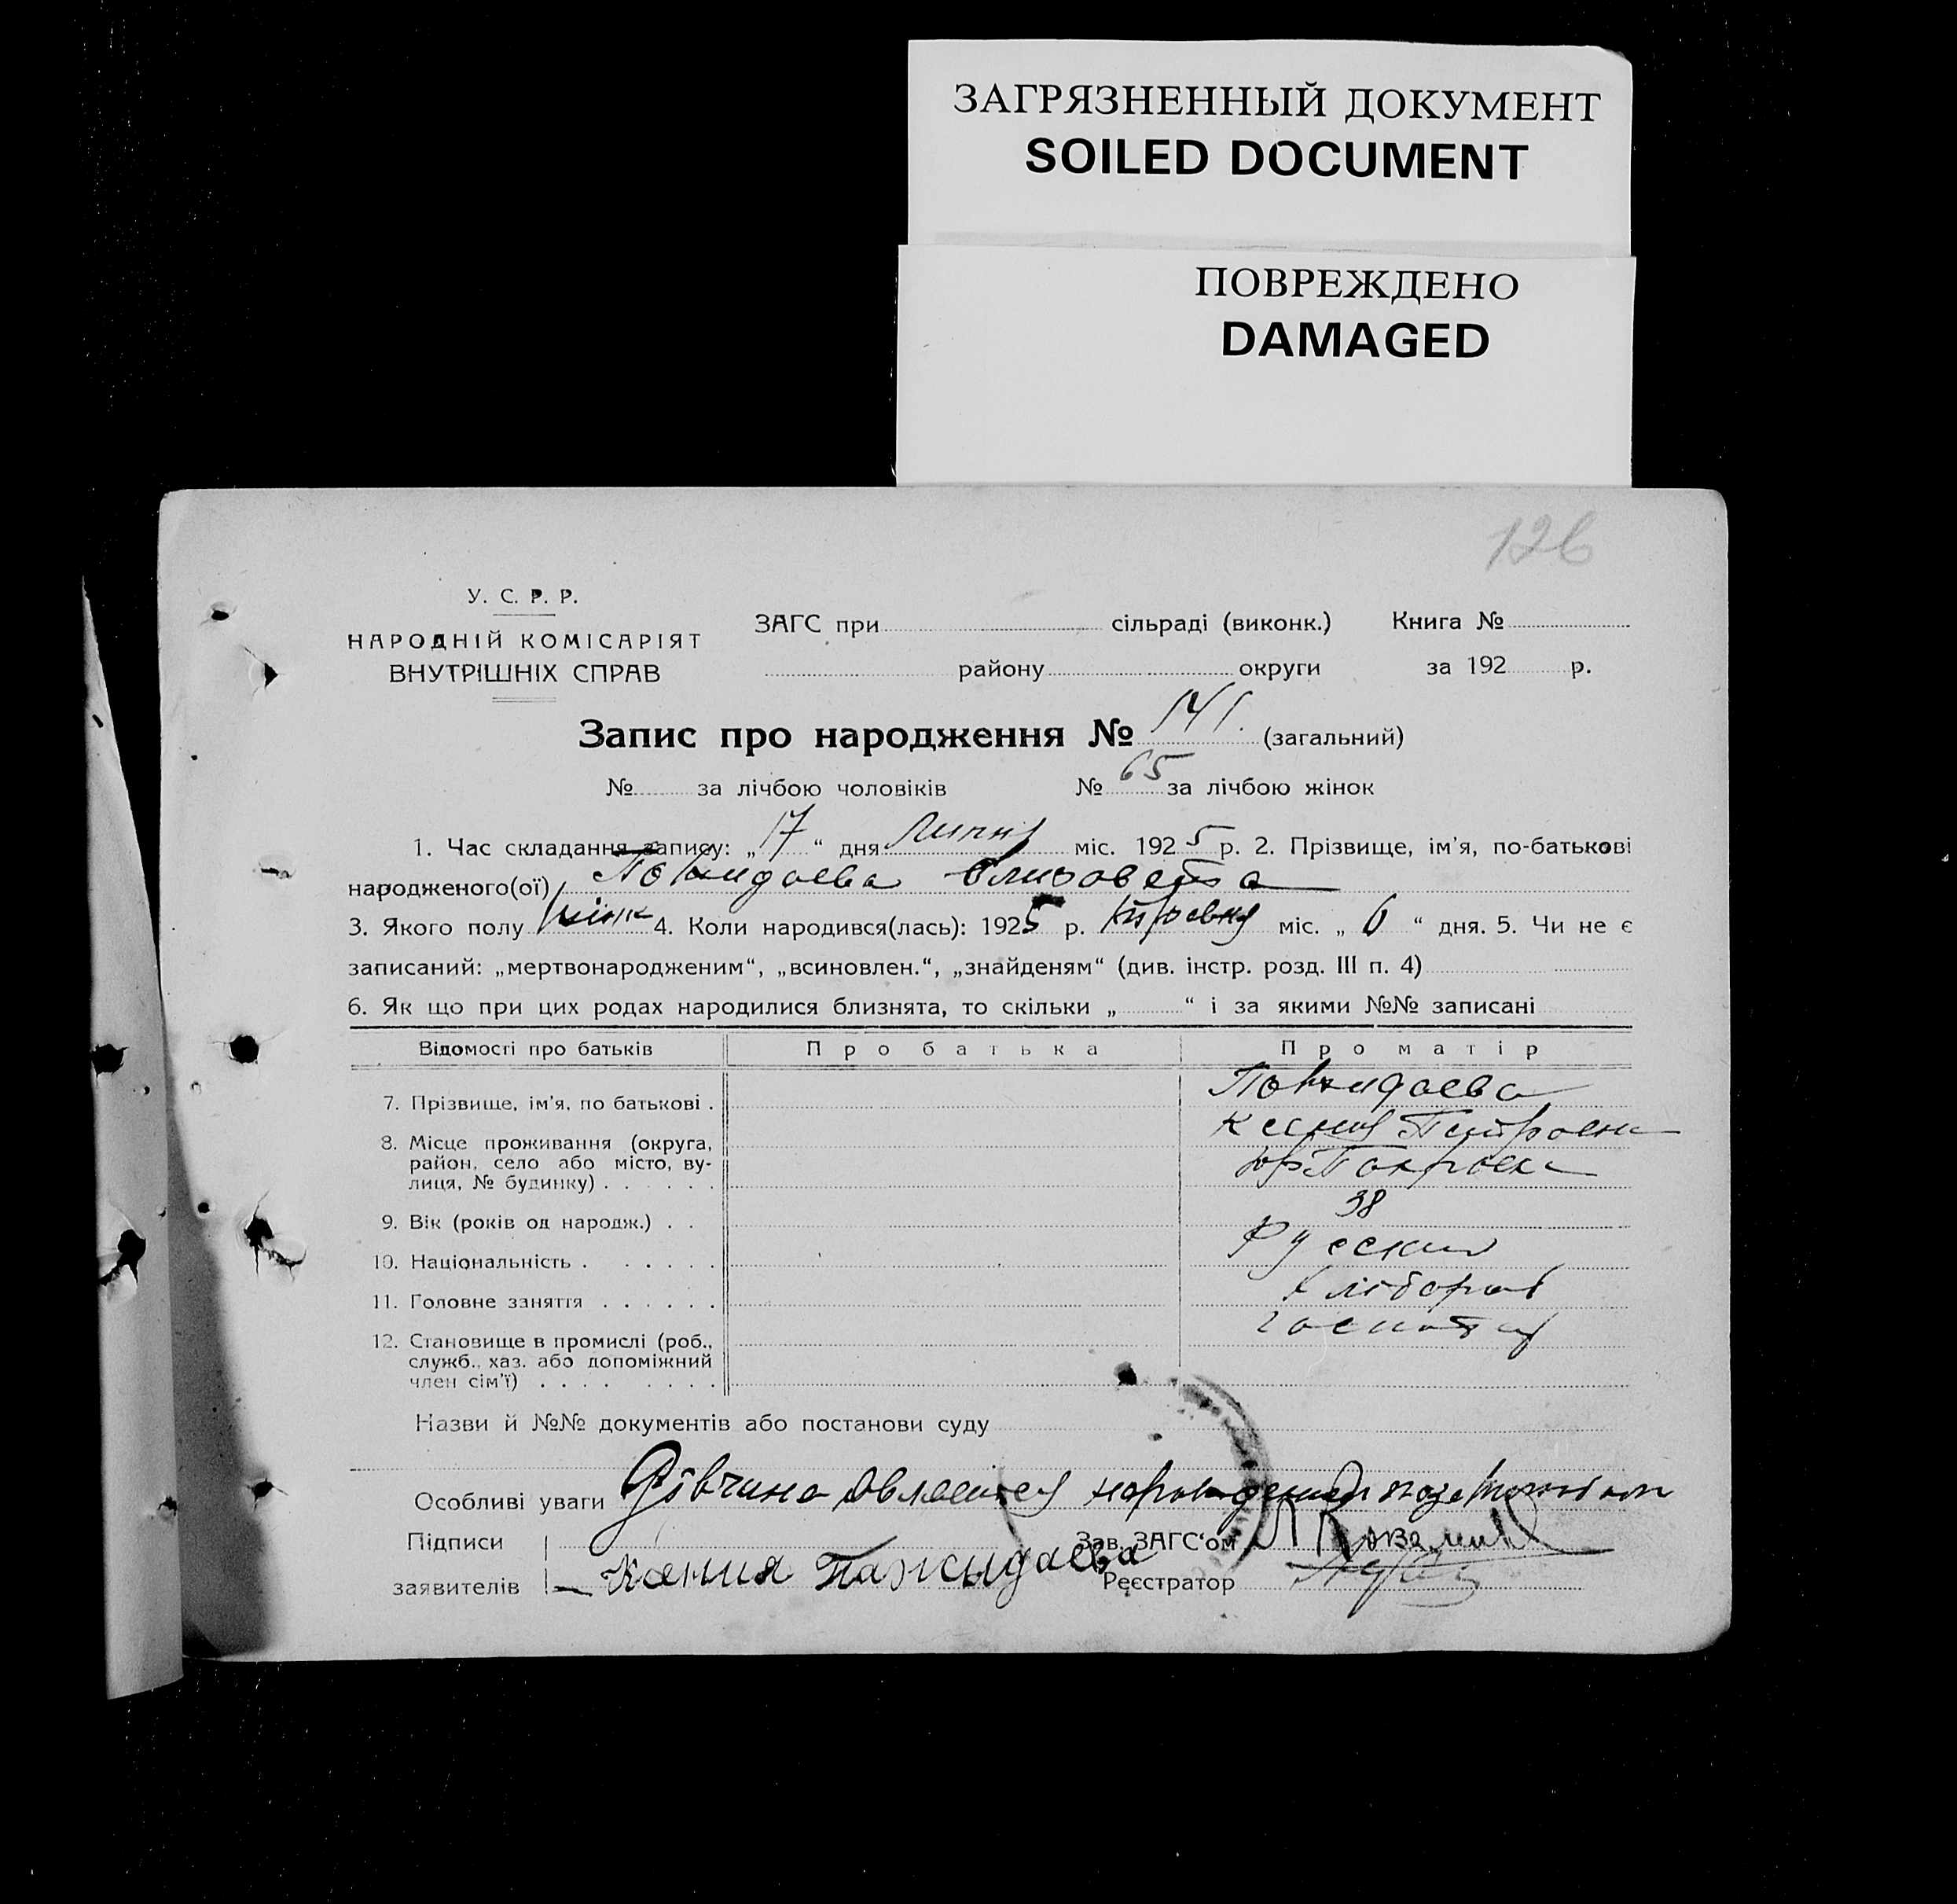 ЗАГРЯЗНЕННЫЙ ДОКУМЕНТ
SOILED DOCUMENT
ПОВРЕЖДЕНО
DAMAGED
126
У. С. Р. Р.
НАРОДНІЙ КОМІСАРІЯТ
ВНУТРІШНІХ СПРАВ
ЗАГС при сільраді (виконк.) Книга №
району округи за 192 р.
Запис про народження № 141. (загальний)
№ за лічбою чоловіків № 65 за лічбою жінок
1. Час складання запису: „17“ дня липня міс. 1925 р. 2. Прізвище, ім'я, по-батькові
народженого(ої) Елизавета
3. Якого полу жінк 4. Коли народився(лась): 1925 р. міс. „6“ дня. 5. Чи не є
записаний: „мертвонародженим“, „всиновлен.“, „знайденям“ (див. інстр. розд. III п. 4)
6. Як що при цих родах народилися близнята, то скільки „ “ і за якими №№ записані
Відомості про батьків Про батька Про матір
7. Прізвище, ім'я, по батькові .
8. Місце проживання (округа, Петровна
район, село або місто, ву-
лиця, № будинку) . . . . . .
9. Вік (років од народж.) . . 38
10. Національність . . . . . . Русская
11. Головне заняття . . . . . .
12. Становище в промислі (роб.,
служб., хаз. або допоміжний
член сім'ї) . . . . . . . .
Назви й №№ документів або постанови суду
Особливі уваги Дівчина
Підписи Зав. ЗАГС‘ом
заявителів Ксения Пажидаева Реєстратор